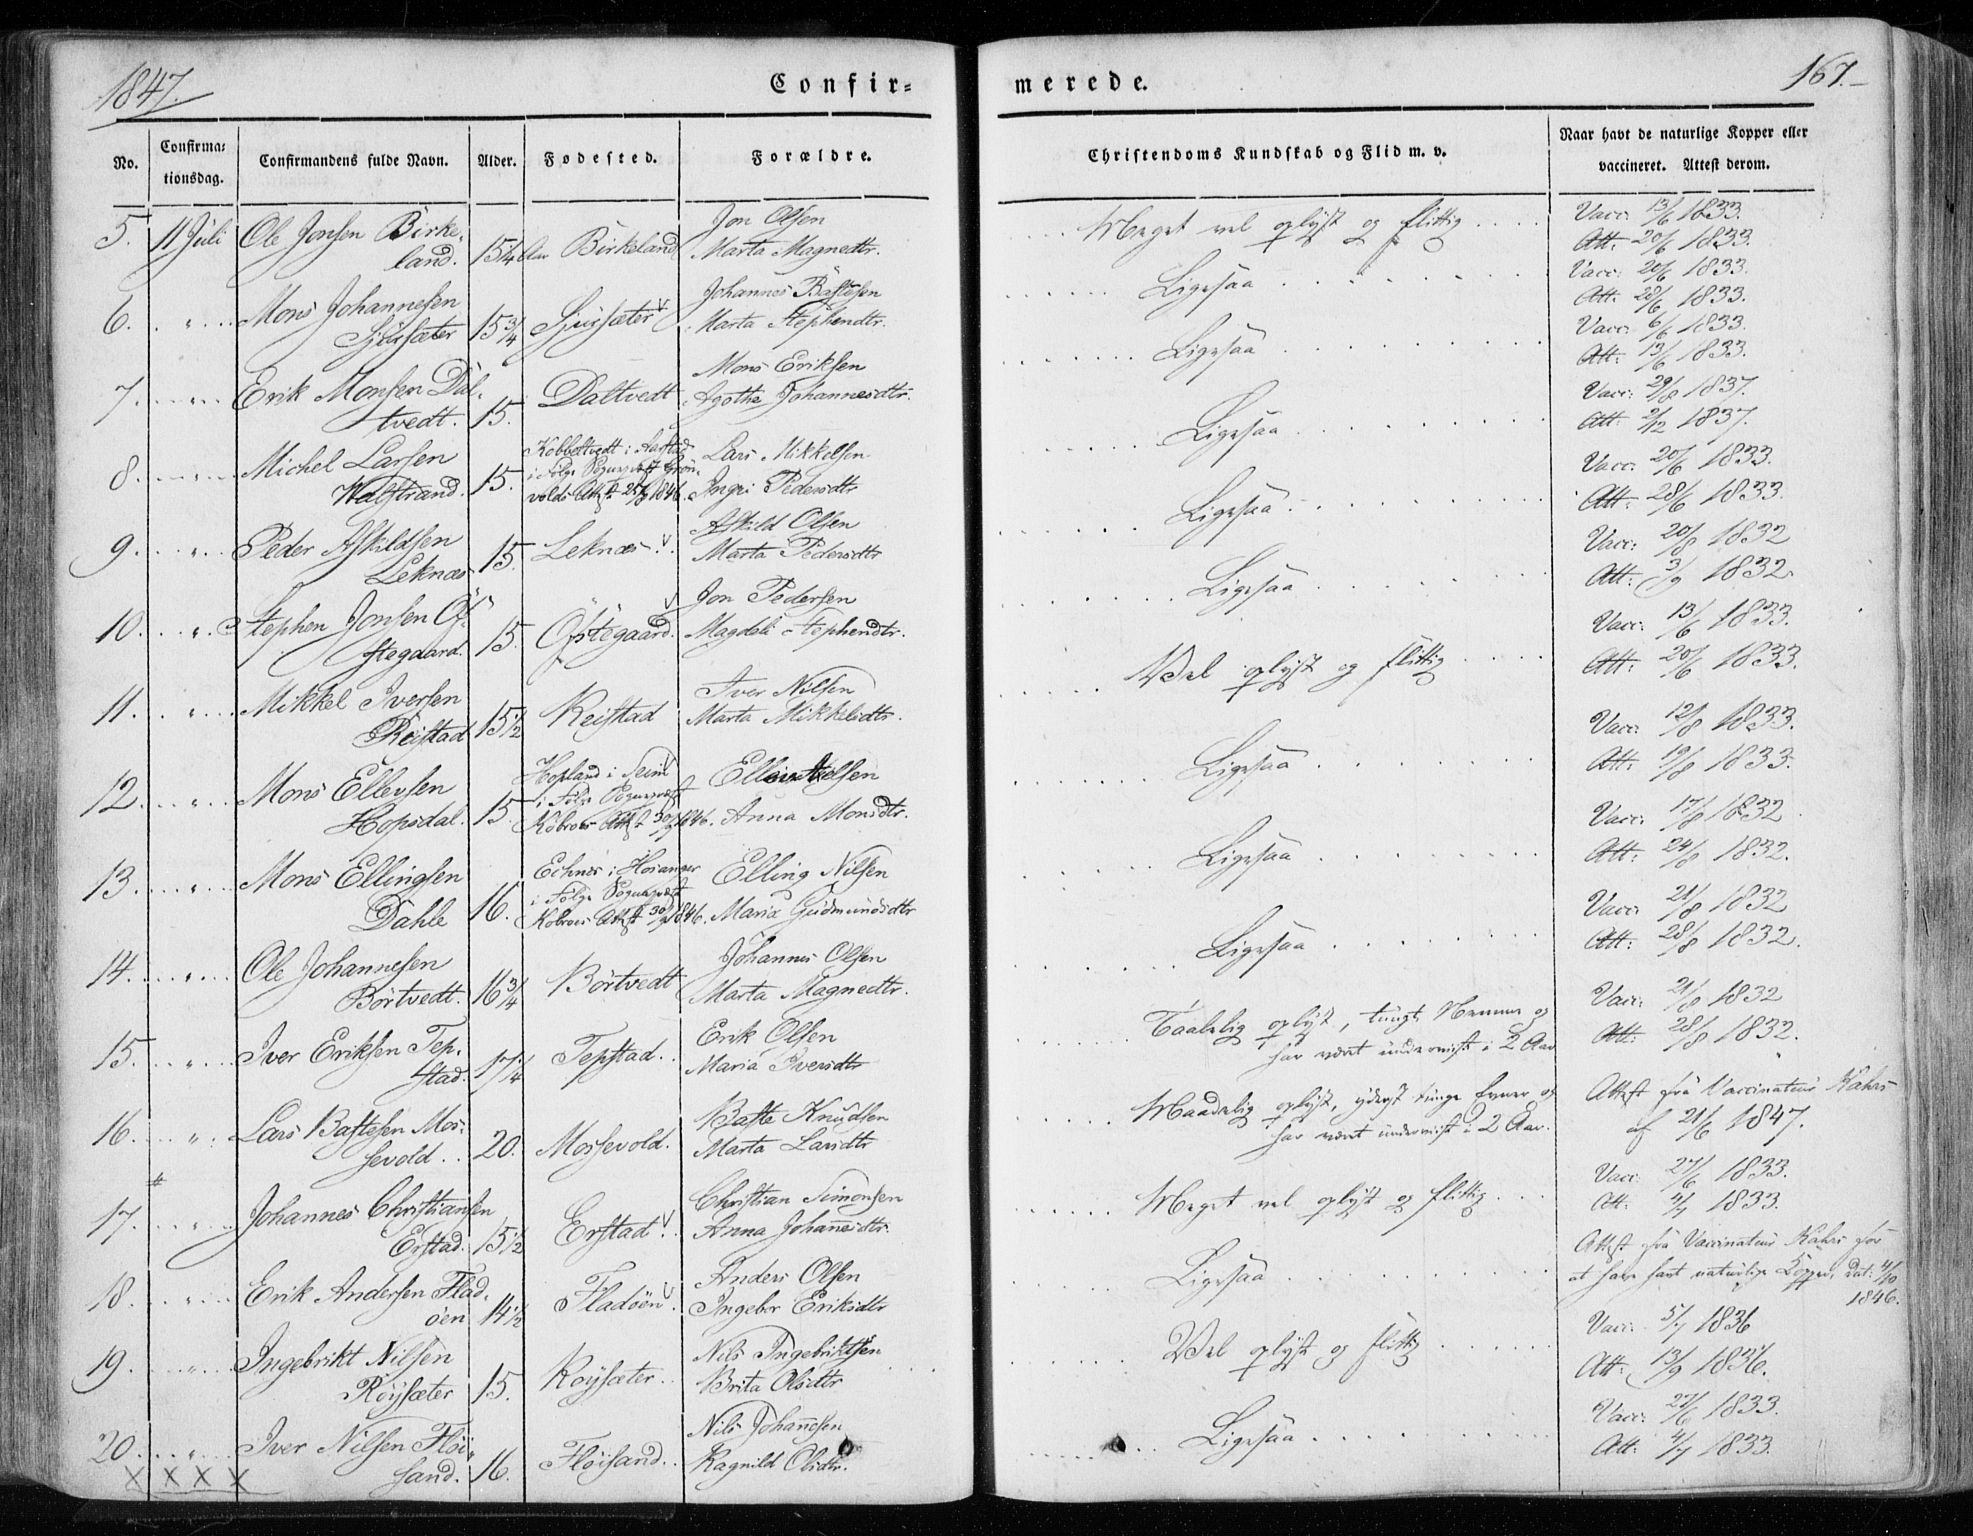 1847.
Confir=
merede.
167.
No.
Confirma=
tionsdag.
Confirmandens fulde Navn.
Alder.
Fødested.
Forældre.
Christendoms Kundskab og Flid m. v.
Naar havt de naturlige Kopper eller
vaccineret. Attest derom.
5. 11 Juli Ole Jonsen Birke-
land. 15 1/4 Aar Birkeland Jon Olsen
Marta Magnedtr. Meget vel oplyst og flittig Vacc: 13/6 1833.
Att: 20/6 1833.
6. " Mons Johannesen
Sjursæter 15 3/4 Sjursæter Johannes Baftesen
Marta Stephendtr. Ligesaa Vacc: 20/6 1833.
Att: 28/6 1833.
7. " Erik Monsen Dal-
tvedt. 15. Daltvedt Mons Eriksen
Agotha Johannesdtr. Ligesaa Vacc: 6/6 1833.
Att: 13/6 1833.
8. " Michel Larsen
Walstrand. 15. Kobbeltvedt i Aarstad
i Følge Sognepræst Grøn-
volds Attest 1846. Lars Mikkelsen
Ingri Pedersdtr Ligesaa Vacc: 29/8 1837.
Att: 2/12 1837.
9. " Peder Askildsen
Leknæs 15. Leknæs Askild Olsen
Marta Pedersdtr Ligesaa Vacc: 20/6 1833.
Att: 28/6 1833.
10. " Stephen Jonsen Øf-
stegaard. 15. Øfstegaard. Jon Pedersen
Magdeli Stephendtr. Ligesaa Vacc: 20/8 1832
Att: 3/9 1832.
11. " Mikkel Iversen
Reistad 15 1/2 Reistad Iver Nilsen
Marta Mikkelsdtr. Vel oplyst og flittig Vacc: 13/6 1833.
Att: 20/6 1833.
12. " Mons Ellevsen
Hopsdal. 15. Hopland i Seim
i Følge Sognepræst
Kobroes Attest 30/9 1846. Anna Monsdtr. Ligesaa Vacc: 12/8 1833.
Att: 19/8 1833.
13. " Mons Ellingsen
Dahle 16. Echnes i Hosanger
i Følge Sognepræst
Kobroes Attest 30/9 1846. Elling Nilsen
Maria Gudmundsdtr Ligesaa Vacc: 17/8 1832
Att: 24/8 1832.
14. " Ole Johannesen
Börtvedt. 16 3/4 Börtvedt Johannes Olsen
Marta Magnedtr. Ligesaa Vacc: 21/8 1832
Att: 28/8 1832.
15. " Iver Eriksen Tep-
stad. 17 1/4 Tepstad. Erik Olsen
Maria Iversdtr Taalelig oplyst, tungt Nemme og
har været underviist i 2 Aar Vacc: 21/8 1832
Att: 28/8 1832.
16. " Lars Baftesen Mos-
sevold. 20. Mossevold. Bafte Knudsen
Marta Larsdtr Maadelig oplyst, yderst tunge Evner og
har været underviist i 2 Aar. Attest fra Vaccinateur Kahrs
af 21/6 1847.
17. " Johannes Christiansen
Erstad. 15 1/2 Erstad. Christian Simonsen
Anna Johannesdtr. Meget vel oplyst og flittig Vacc: 27/6 1833.
Att: 4/7 1833.
18. " Erik Andersen Flad-
öen 14 1/2 Fladöen. Anders Olsen
Ingebr Eriksdtr Ligesaa Attest fra Vaccinateur Kahrs for
at have havt naturlige Kopper, dat: 4/10
1846.
19. " Ingebrikt Nilsen
Röysæter 15. Röysæter. Nils Ingebriktsen
Brita Olsdtr Vel oplyst og flittig Vacc: 5/7 1836
Att: 13/9 1836.
20. " Iver Nilsen Flöi-
sand. 16. Flöisand. Nils Johannesen
Ragnild Olsdtr. Ligesaa Vacc: 27/6 1833.
Att: 4/7 1833.
X X X X